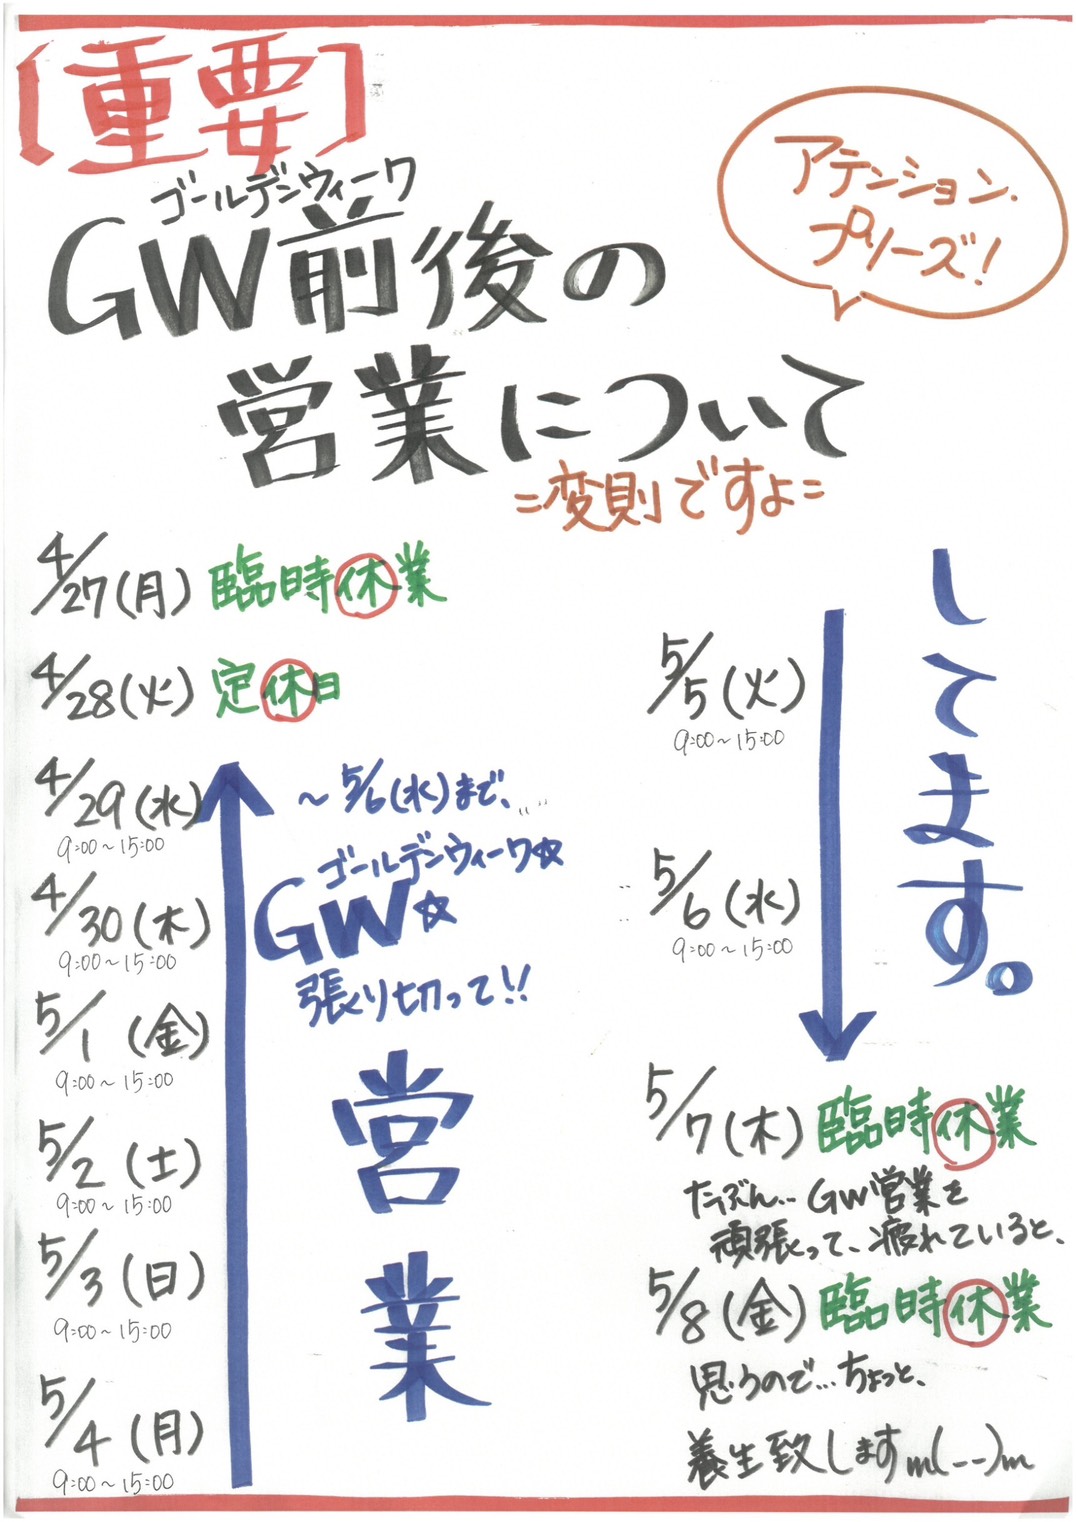 ［重要］
アテンション・
プリーズ！
ゴールデンウィーク
GW前後の
営業について
=変則ですよ=
4/27(月) 臨時休業
4/28(火) 定休日
4/29(水)
9:00～15:00
4/30(木)
9:00～15:00
5/1(金)
9:00～15:00
5/2(土)
9:00～15:00
5/3(日)
9:00～15:00
5/4(月)
9:00～15:00
～5/6(水)まで、
ゴールデンウィーク☆
GW☆
張り切って!!
営業
してます。
5/5(火)
9:00～15:00
5/6(水)
9:00～15:00
5/7(木) 臨時休業
たぶん… GW営業を
頑張って、疲れていると、
5/8(金) 臨時休業
思うので…ちょっと、
養生致しますm(--)m